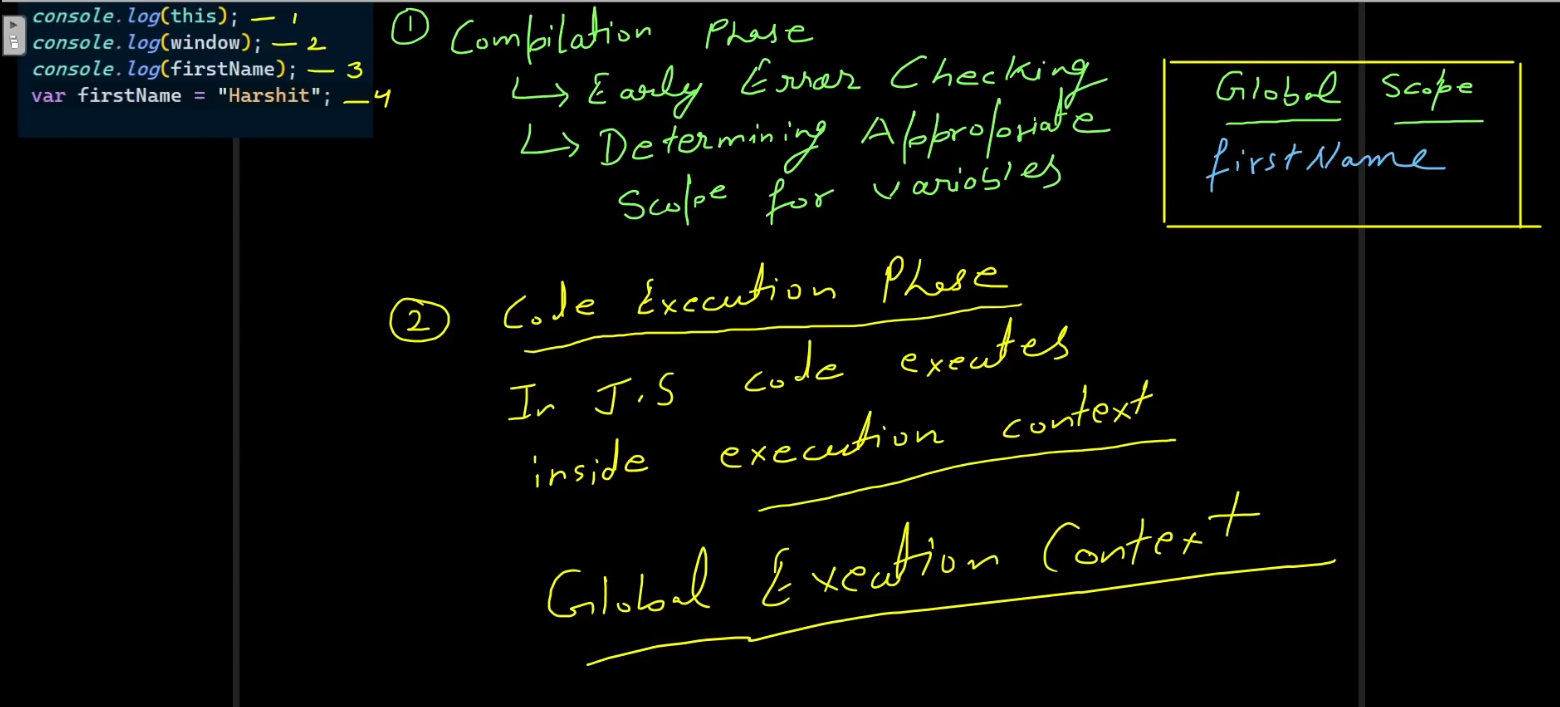 console.log(this); — 1
console.log(window); — 2
console.log(firstName); — 3
var firstName = "Harshit"; — 4
① Compilation Phase
↳ Early Error Checking
↳ Determining Appropriate
Scope for variables
Global Scope
firstName
② Code Execution Phase
In J.S code executes
inside execution context
Global Execution Context